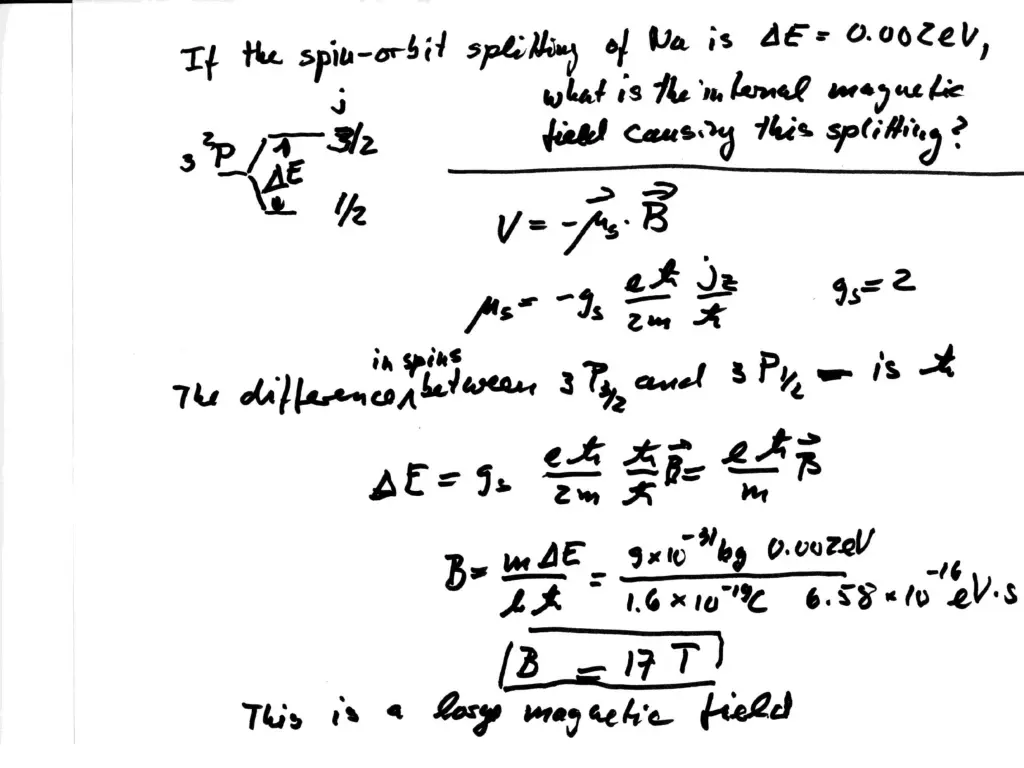 If the spin-orbit splitting of Na is ΔE = 0.002eV,
what is the internal magnetic
field causing this splitting?
j
3 ²P ΔE 3/2
1/2
V = -μ⃗s · B⃗
μs = -gs eħ/2m jz/ħ gs = 2
in spins
The difference ∧ between 3 P3/2 and 3 P1/2 – is ħ
ΔE = gs eħ/2m ħ/ħ B⃗ = eħ/m B⃗
B = mΔE/eħ = 9×10⁻³¹kg 0.002eV / 1.6×10⁻¹⁹C 6.58×10⁻¹⁶eV·s
B = 17 T
This is a large magnetic field